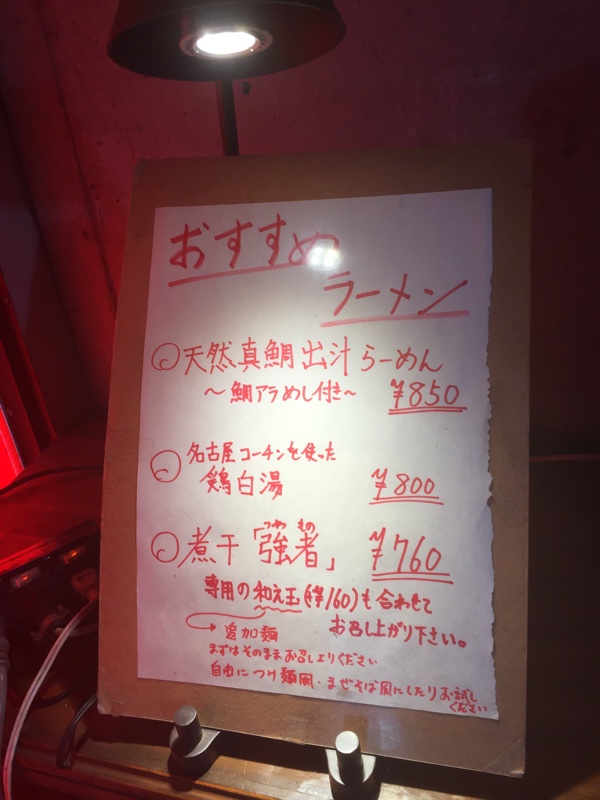 おすすめ
ラーメン
天然真鯛出汁らーめん
～鯛アラめし付き～ ¥850
名古屋コーチンを使った
鶏白湯 ¥800
つわ もの
煮干「強者」 ¥760
専用の和え玉(¥160)も合わせて
お召し上がり下さい。
追加麺
まずはそのままお召し上りください
自由につけ麺風・まぜそば風にしたりお試し
ください